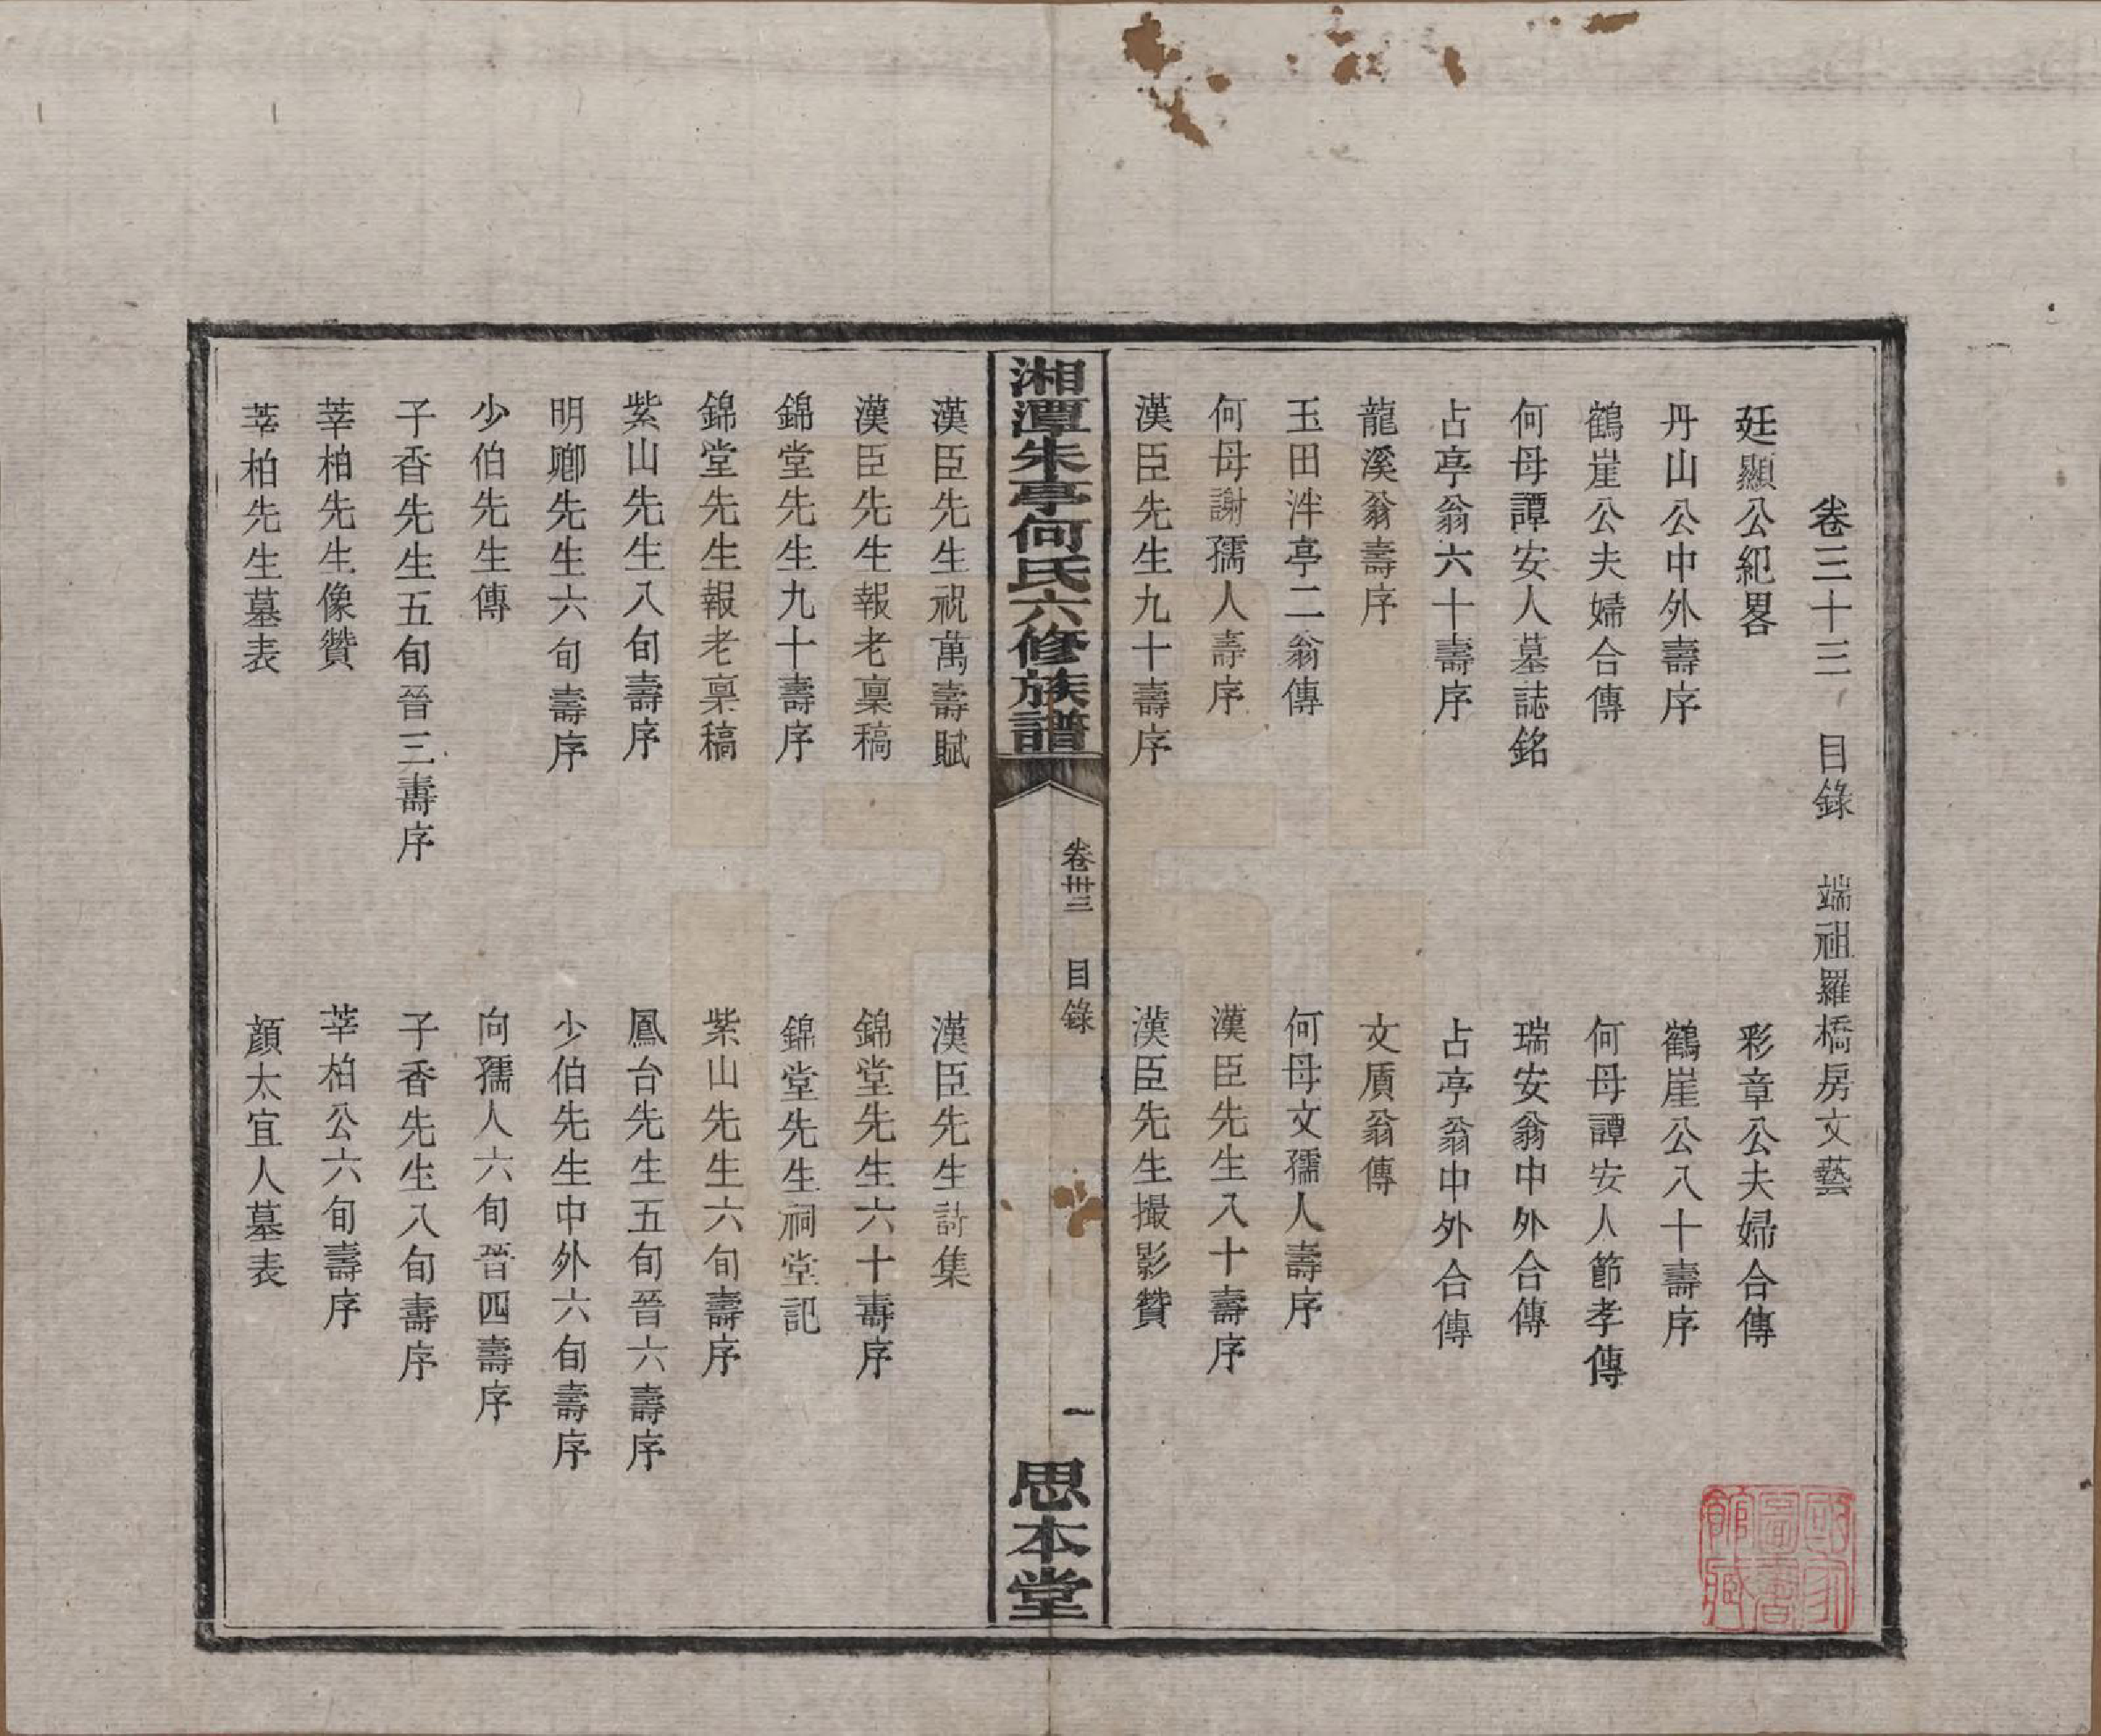 卷三十三 目錄 端祖羅橋房文藝
廷顯公紀畧 彩章公夫婦合傳
丹山公中外壽序 鶴崖公八十壽序
鶴崖公夫婦合傳 何母譚安人節孝傳
何母譚安人墓誌銘 瑞安翁中外合傳
占亭翁六十壽序 占亭翁中外合傳
龍溪翁壽序 文質翁傳
玉田泮亭二翁傳 何母文孺人壽序
何母謝孺人壽序 漢臣先生八十壽序
漢臣先生九十壽序 漢臣先生撮影贊
湘潭朱亭何氏六修族譜 卷卅三 目錄 一 思本堂
漢臣先生祝萬壽賦 漢臣先生詩集
漢臣先生報老稟稿 錦堂先生六十壽序
錦堂先生九十壽序 錦堂先生祠堂記
錦堂先生報老稟稿 紫山先生六旬壽序
紫山先生八旬壽序 鳳台先生五旬晉六壽序
明卿先生六旬壽序 少伯先生中外六旬壽序
少伯先生傳 向孺人六旬晉四壽序
子香先生五旬晉三壽序 子香先生八旬壽序
莘柏先生像贊 莘柏公六旬壽序
莘柏先生墓表 顏太宜人墓表
國家圖書館藏